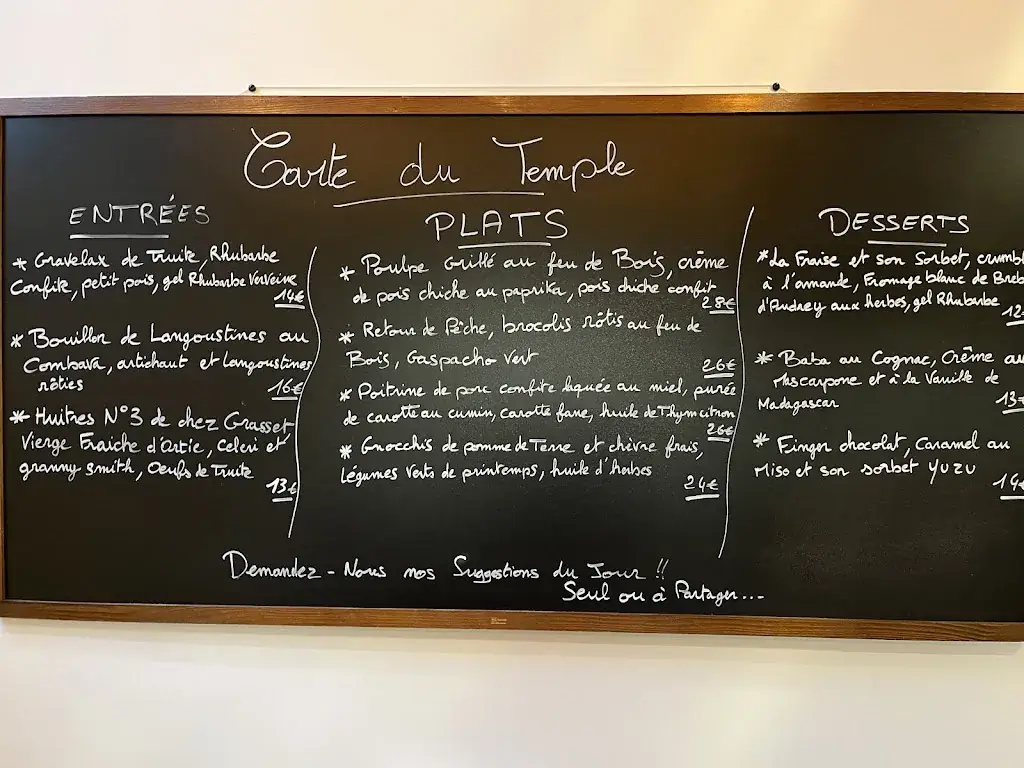 Carte du Temple
ENTRÉES
* Gravelax de Truite, Rhubarbe
Confite, petit pois, gel Rhubarbe Verveine
14€
* Bouillon de Langoustines au
Combava, artichaut et langoustines
rôties
16€
* Huitres N°3 de chez Grasset
Vierge Fraiche d'ortie, Celeri et
granny smith, Oeufs de Truite
13€
PLATS
* Poulpe Grillé au feu de Bois, crème
de pois chiche au paprika, pois chiche confit
28€
* Retour de Pêche, brocolis rôtis au feu de
Bois, Gaspacho Vert
26€
* Poitrine de porc confite laquée au miel, purée
de carotte au cumin, carotte fane, huile de Thym citron
26€
* Gnocchis de pomme de Terre et chèvre frais,
légumes Verts de printemps, huile d'herbes
24€
DESSERTS
* La Fraise et son Sorbet, crumbl
à l'amande, Fromage blanc de Breb
d'Audrey aux herbes, gel Rhubarbe
12
* Baba au Cognac, Crème au
Mascarpone et à la Vanille de
Madagascar
13€
* Finger chocolat, Caramel au
Miso et son sorbet YUZU
14€
Demandez-Nous nos Suggestions du Jour !!
Seul ou à Partager...